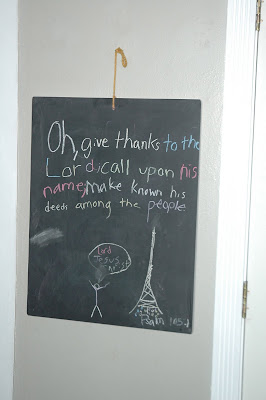 Oh, give thanks to the
Lord; call upon his
name; make known his
deeds among the people
Lord
Jesus
Christ
Psalm 105:1